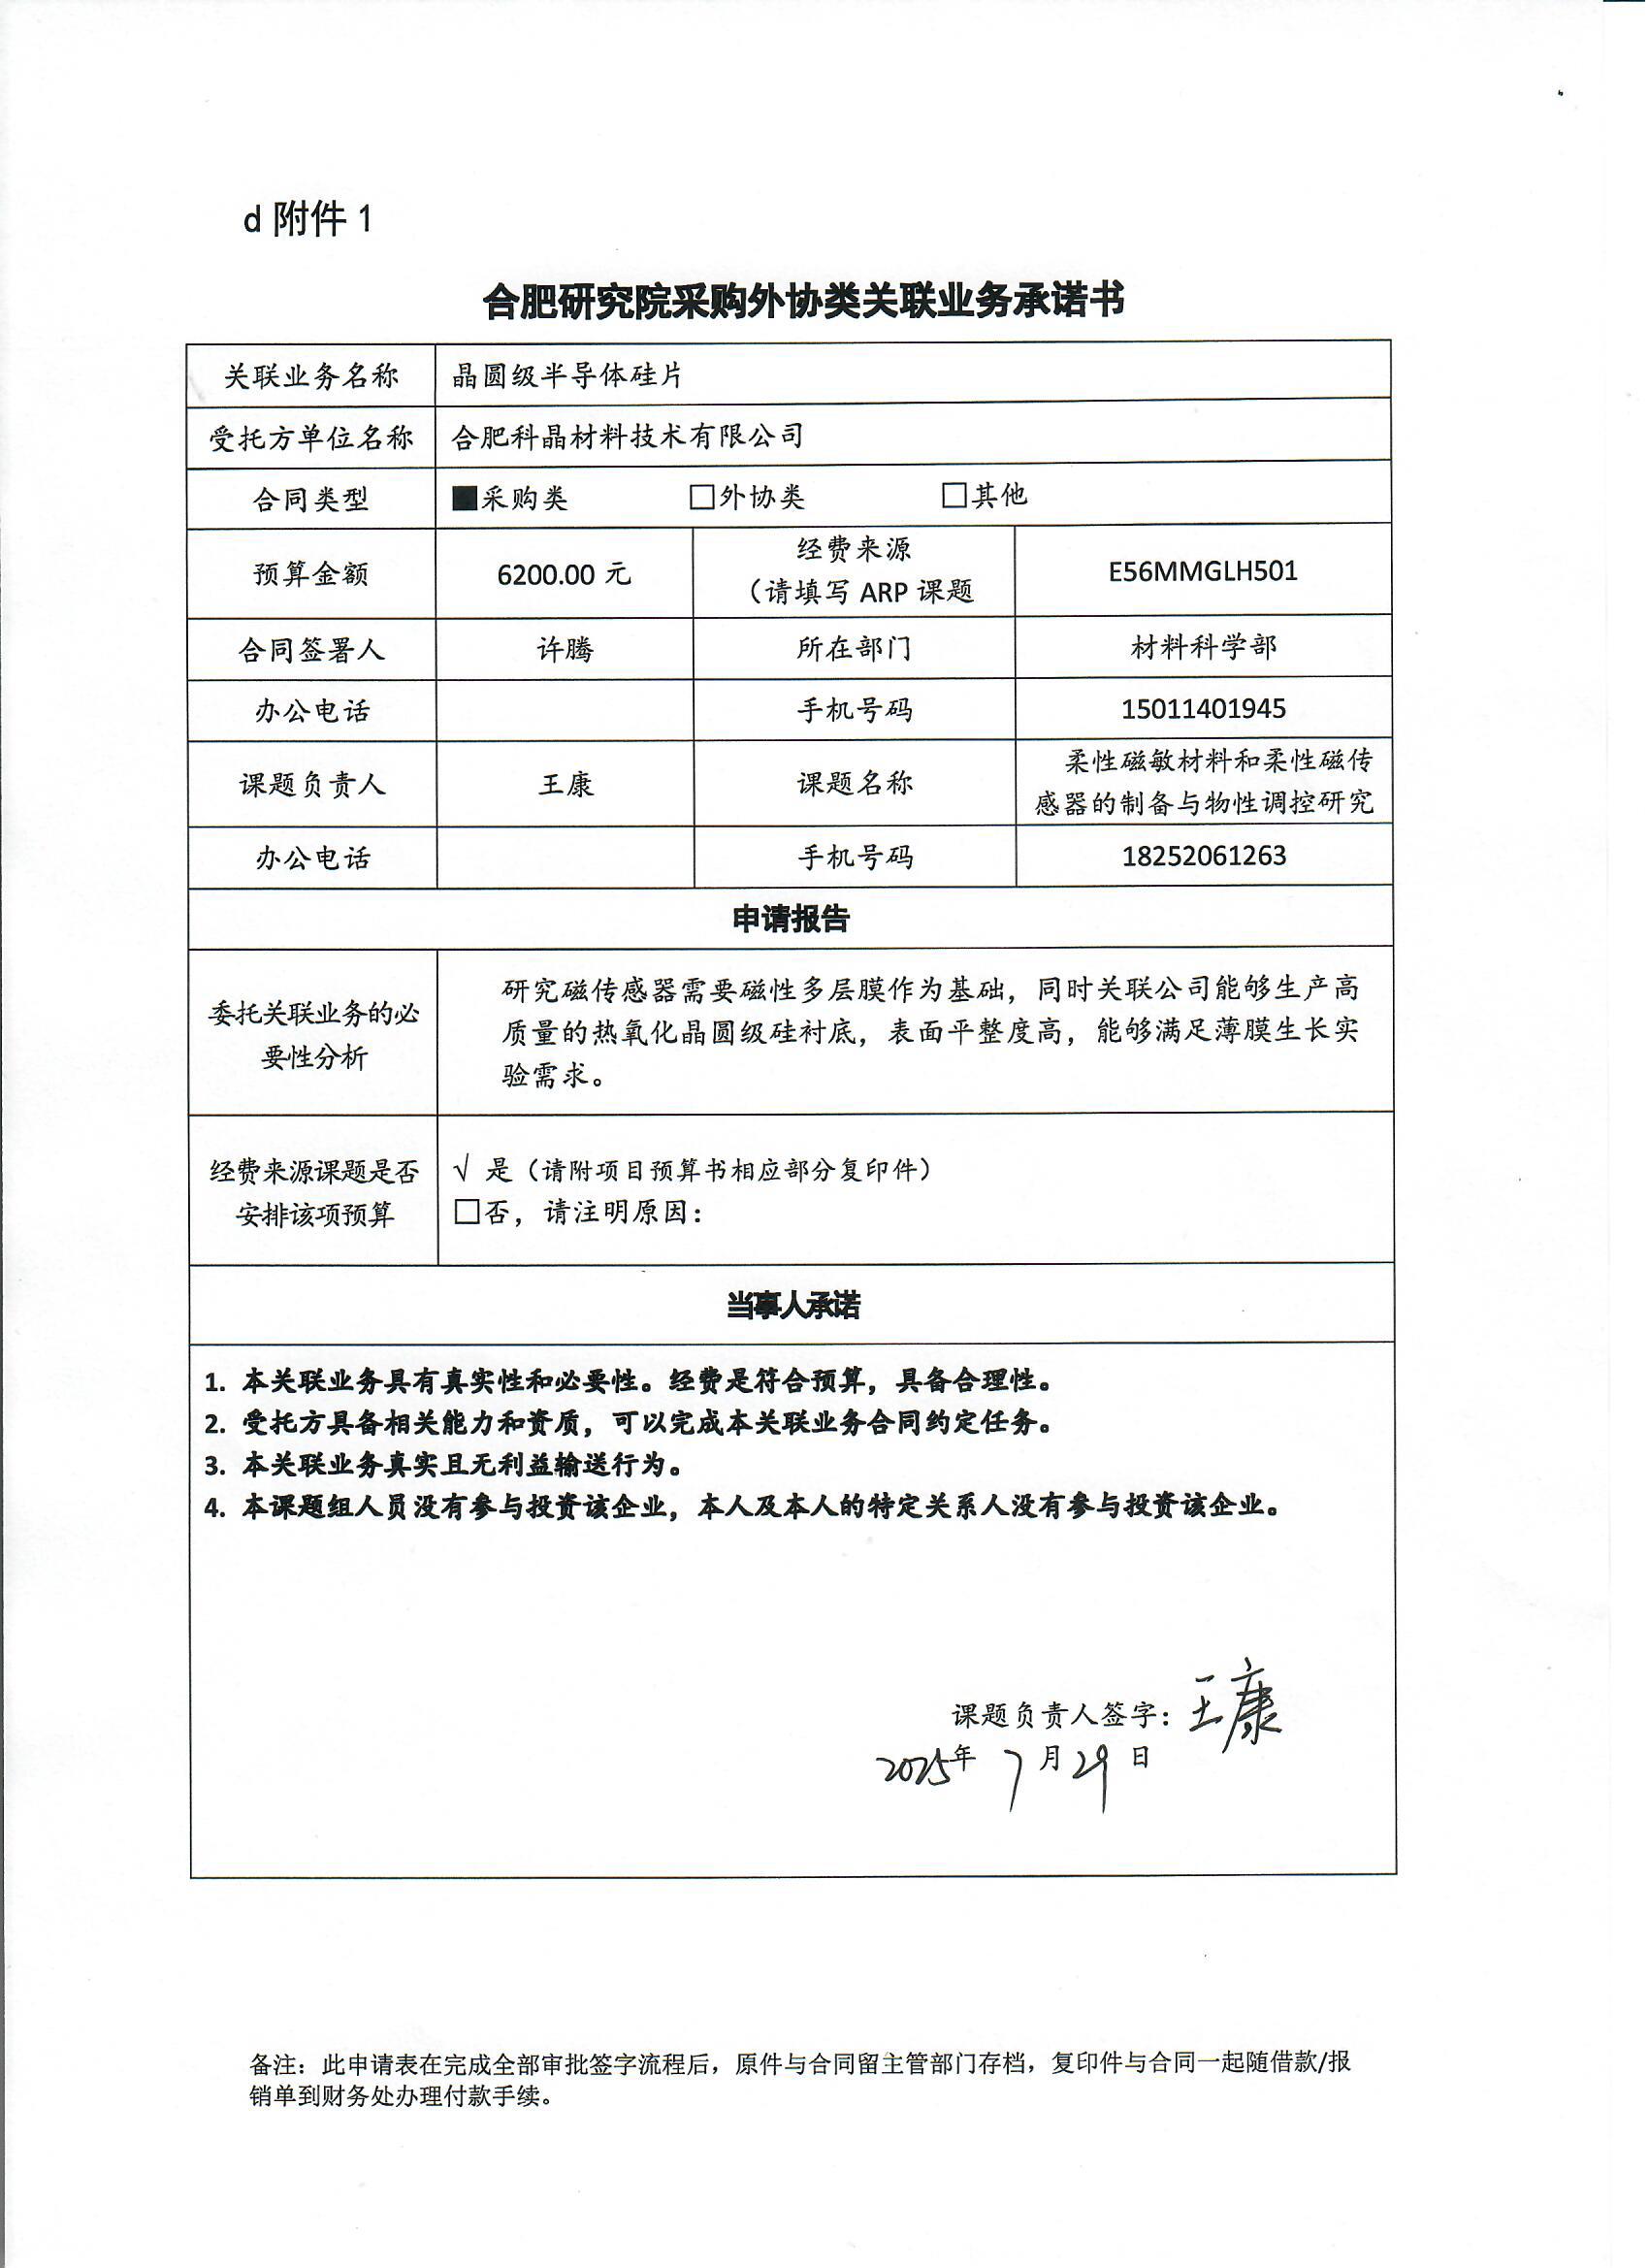 d 附件 1
合肥研究院采购外协类关联业务承诺书
关联业务名称 晶圆级半导体硅片
受托方单位名称 合肥科晶材料技术有限公司
合同类型 ■采购类 □外协类 □其他
预算金额 6200.00 元 经费来源
（请填写 ARP 课题 E56MMGLH501
合同签署人 许腾 所在部门 材料科学部
办公电话 手机号码 15011401945
课题负责人 王康 课题名称 柔性磁敏材料和柔性磁传
感器的制备与物性调控研究
办公电话 手机号码 18252061263
申请报告
委托关联业务的必
要性分析
研究磁传感器需要磁性多层膜作为基础，同时关联公司能够生产高
质量的热氧化晶圆级硅衬底，表面平整度高，能够满足薄膜生长实
验需求。
经费来源课题是否
安排该项预算
√ 是（请附项目预算书相应部分复印件）
□否，请注明原因：
当事人承诺
1. 本关联业务具有真实性和必要性。经费是符合预算，具备合理性。
2. 受托方具备相关能力和资质，可以完成本关联业务合同约定任务。
3. 本关联业务真实且无利益输送行为。
4. 本课题组人员没有参与投资该企业，本人及本人的特定关系人没有参与投资该企业。
课题负责人签字：王康
2025年 7月29日
备注：此申请表在完成全部审批签字流程后，原件与合同留主管部门存档，复印件与合同一起随借款/报
销单到财务处办理付款手续。